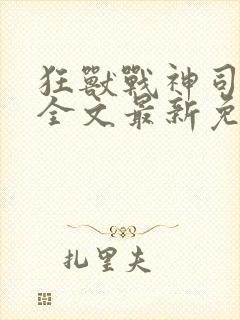 狂獸戰神司
全文最新免
扎里夫